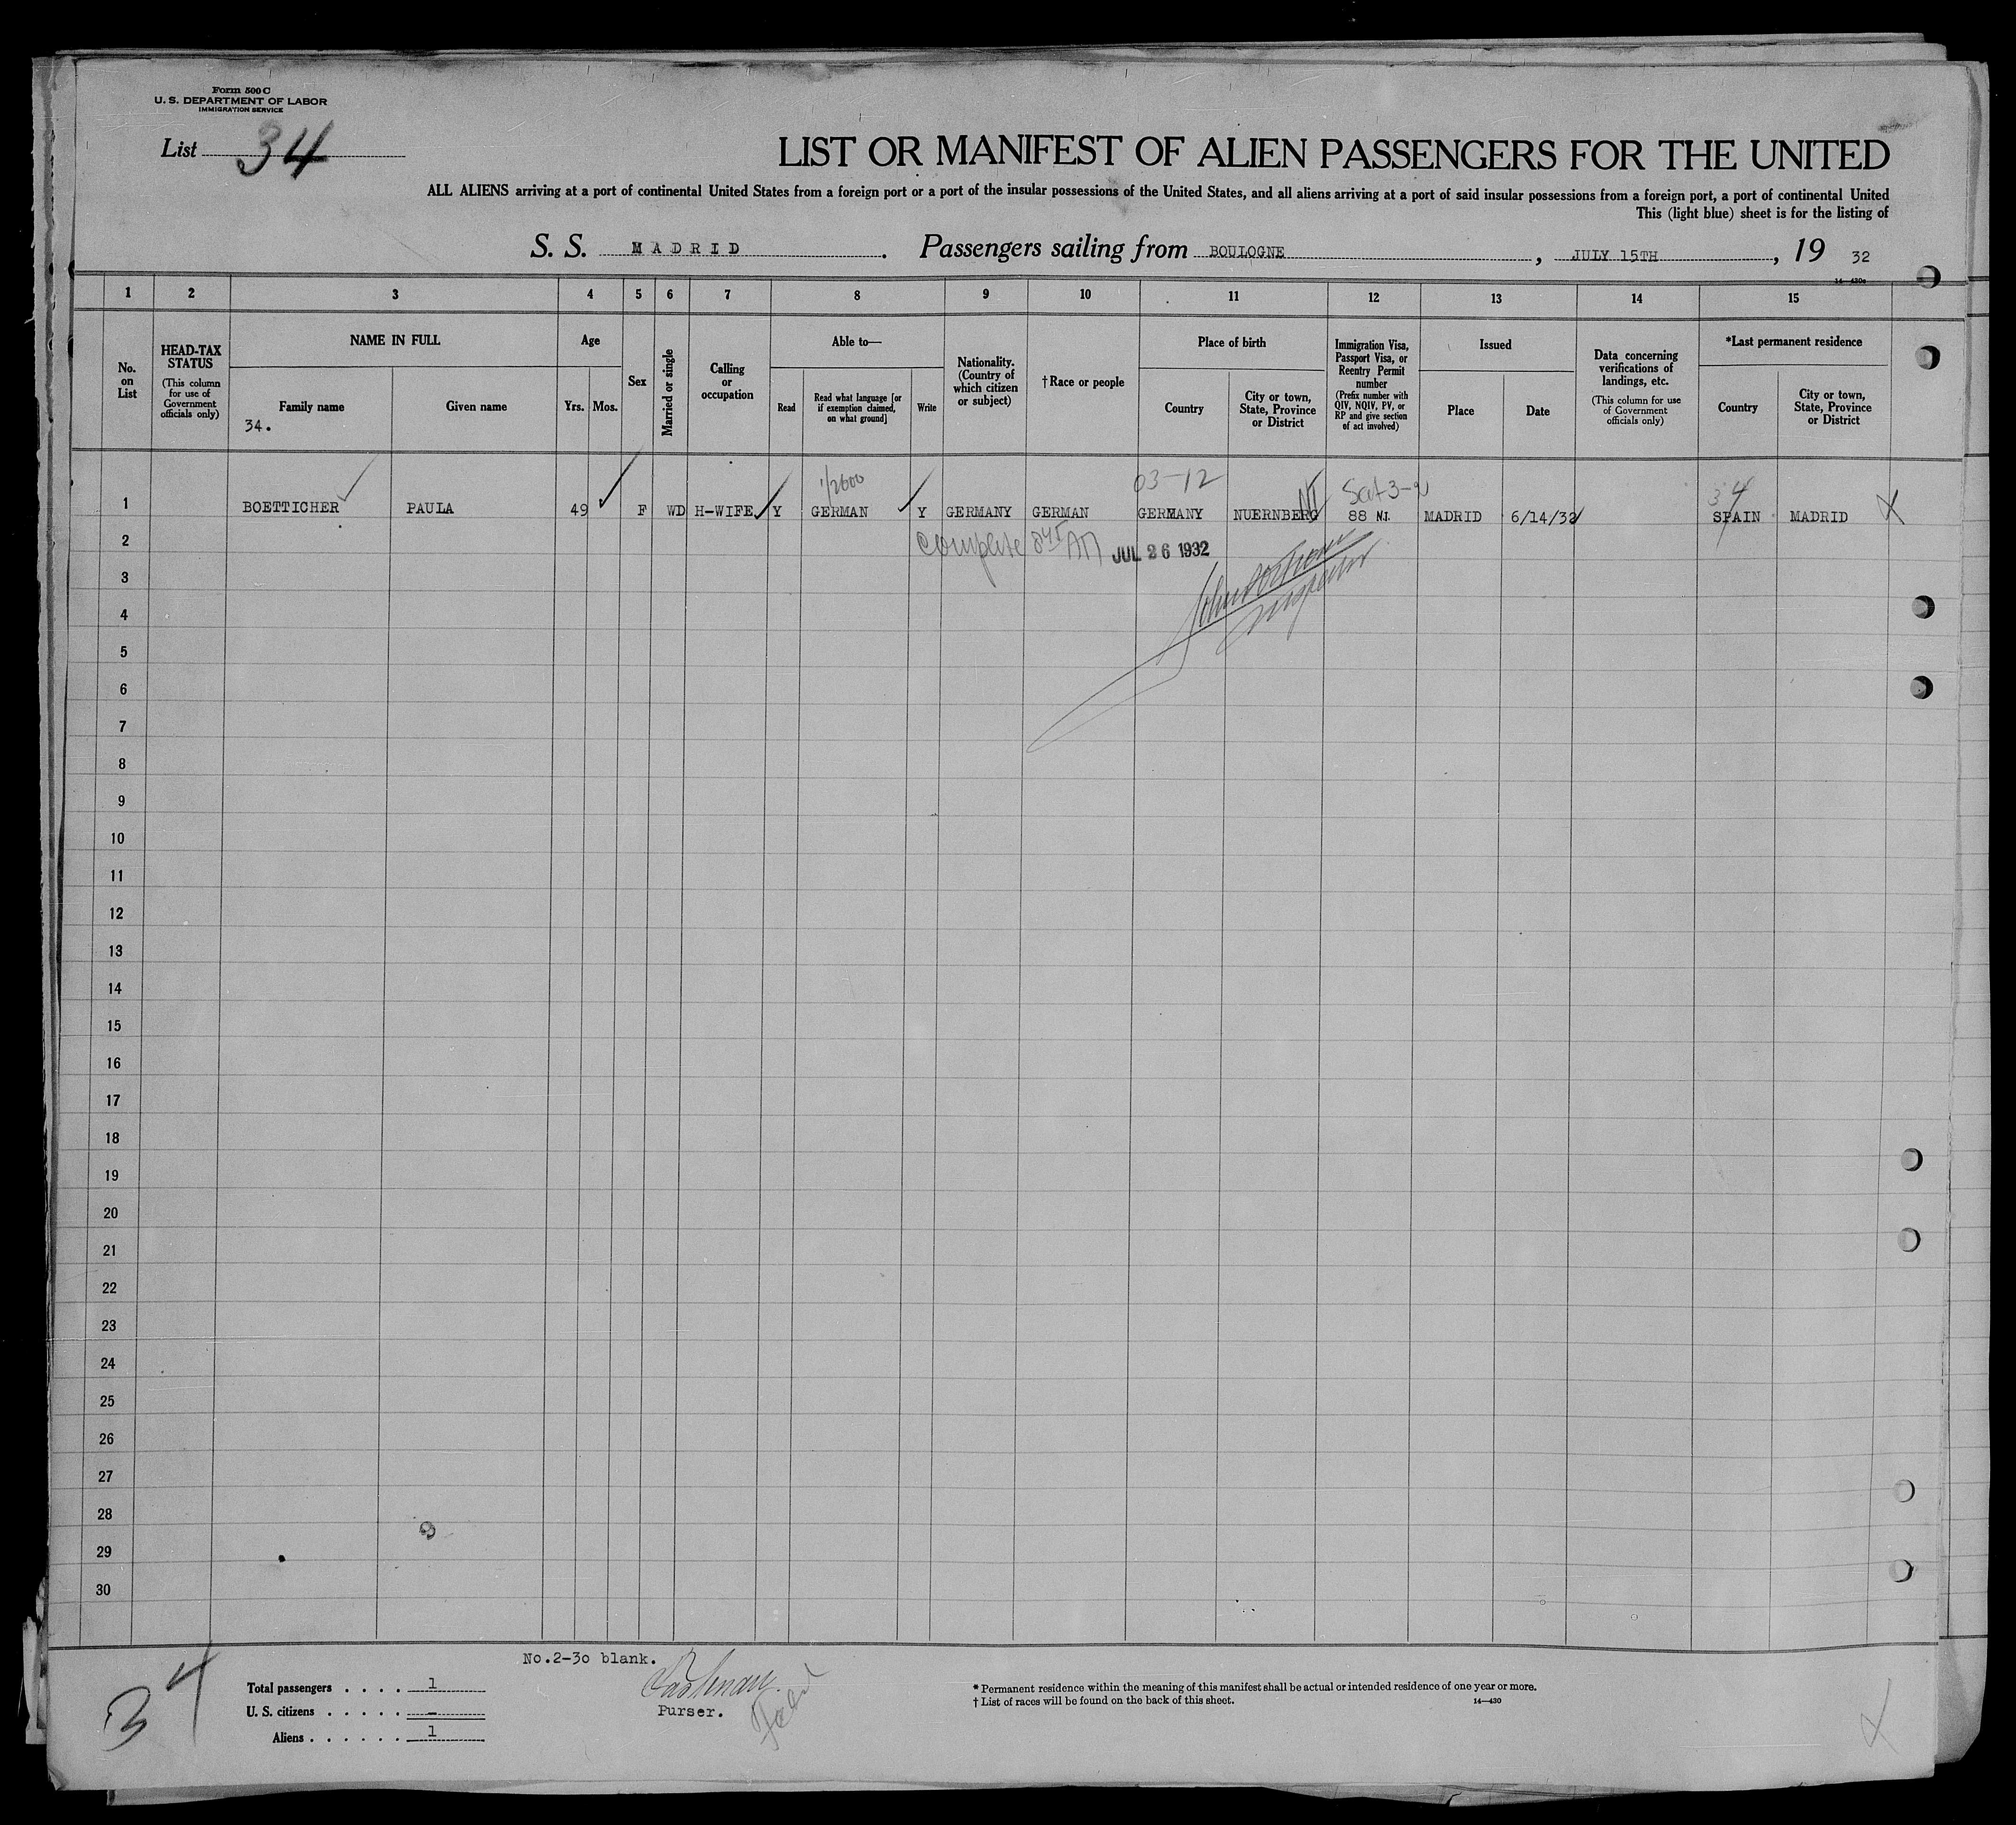 Form 500 C
U. S. DEPARTMENT OF LABOR
IMMIGRATION SERVICE
List 34
LIST OR MANIFEST OF ALIEN PASSENGERS FOR THE UNITED
ALL ALIENS arriving at a port of continental United States from a foreign port or a port of the insular possessions of the United States, and all aliens arriving at a port of said insular possessions from a foreign port, a port of continental United
This (light blue) sheet is for the listing of
S. S. MADRID. Passengers sailing from BOULOGNE, JULY 15TH, 19 32
1 2 3 4 5 6 7 8 9 10 11 12 13 14 15
No. on List
HEAD-TAX STATUS (This column for use of Government officials only)
NAME IN FULL
Family name
34.
Given name
Age
Yrs. Mos.
Sex
Married or single
Calling or occupation
Able to—
Read
Read what language [or if exemption claimed, on what ground]
Write
Nationality. (Country of which citizen or subject)
† Race or people
Place of birth
Country
City or town, State, Province or District
Immigration Visa, Passport Visa, or Reentry Permit number (Prefix number with QIV, NQIV, PV, or RP and give section of act involved)
Issued
Place
Date
Data concerning verifications of landings, etc. (This column for use of Government officials only)
*Last permanent residence
Country
City or town, State, Province or District
03-12
34
1 BOETTICHER PAULA 49 F WD H-WIFE Y GERMAN Y GERMANY GERMAN GERMANY NUERNBERG 88 MADRID 6/14/32 SPAIN MADRID
2 complete JUL 26 1932
3
Inspector
4
5
6
7
8
9
10
11
12
13
14
15
16
17
18
19
20
21
22
23
24
25
26
27
28
29
30
No.2-30 blank.
34
Total passengers . . . . 1
U. S. citizens . . . . . –
Aliens . . . . . . 1
Purser.
* Permanent residence within the meaning of this manifest shall be actual or intended residence of one year or more.
† List of races will be found on the back of this sheet.
14—430